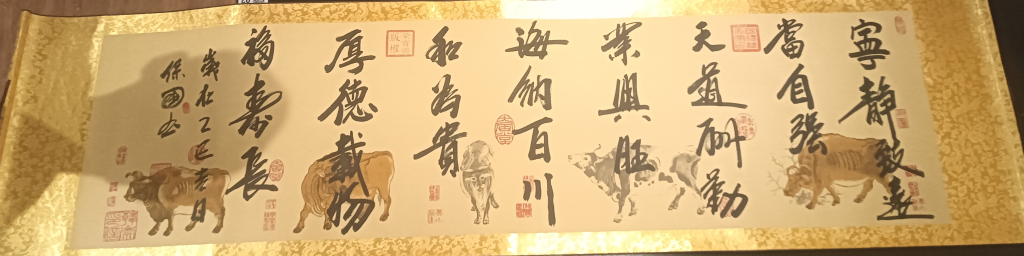 寧靜致遠
當自強
天道酬勤
業興旺
海納百川
和為貴
厚德載物
福壽長
歲在乙巳春日
保國書